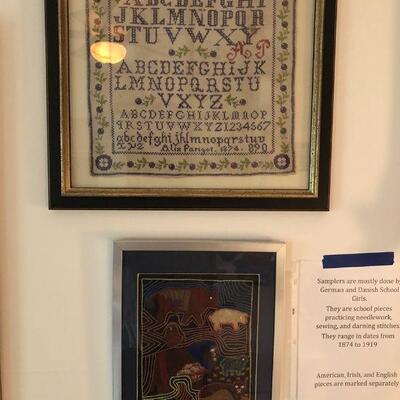 ABCDEFGHI
JKLMNOPQR
STUVWXY
AP
ABCDEFGHIJK
LMNOPQRSTU
VWXYZ
ABCDEFGHIJKLMNOP
QRSTUVWXYZ1234667
abcdefghijklmnopqrstuv
xyz Alix Parigot. 1874. 890
Samplers are mostly done by
German and Danish School
Girls.
They are school pieces
practicing needlework,
sewing, and darning stitches.
They range in dates from
1874 to 1919
American, Irish, and English
pieces are marked separately